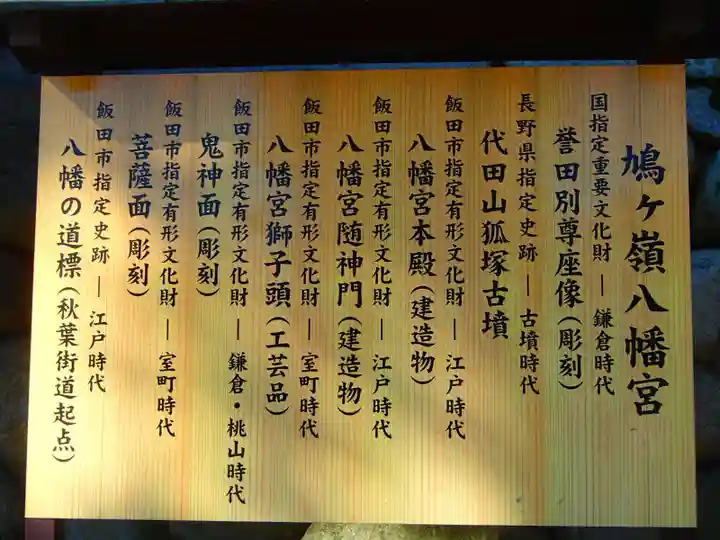 鳩ヶ嶺八幡宮
国指定重要文化財 ― 鎌倉時代
誉田別尊座像(彫刻)
長野県指定史跡 ― 古墳時代
代田山狐塚古墳
飯田市指定有形文化財 ― 江戸時代
八幡宮本殿(建造物)
飯田市指定有形文化財 ― 江戸時代
八幡宮随神門(建造物)
飯田市指定有形文化財 ― 室町時代
八幡宮獅子頭(工芸品)
飯田市指定有形文化財 ― 鎌倉・桃山時代
鬼神面(彫刻)
飯田市指定有形文化財 ― 室町時代
菩薩面(彫刻)
飯田市指定史跡 ― 江戸時代
八幡の道標(秋葉街道起点)